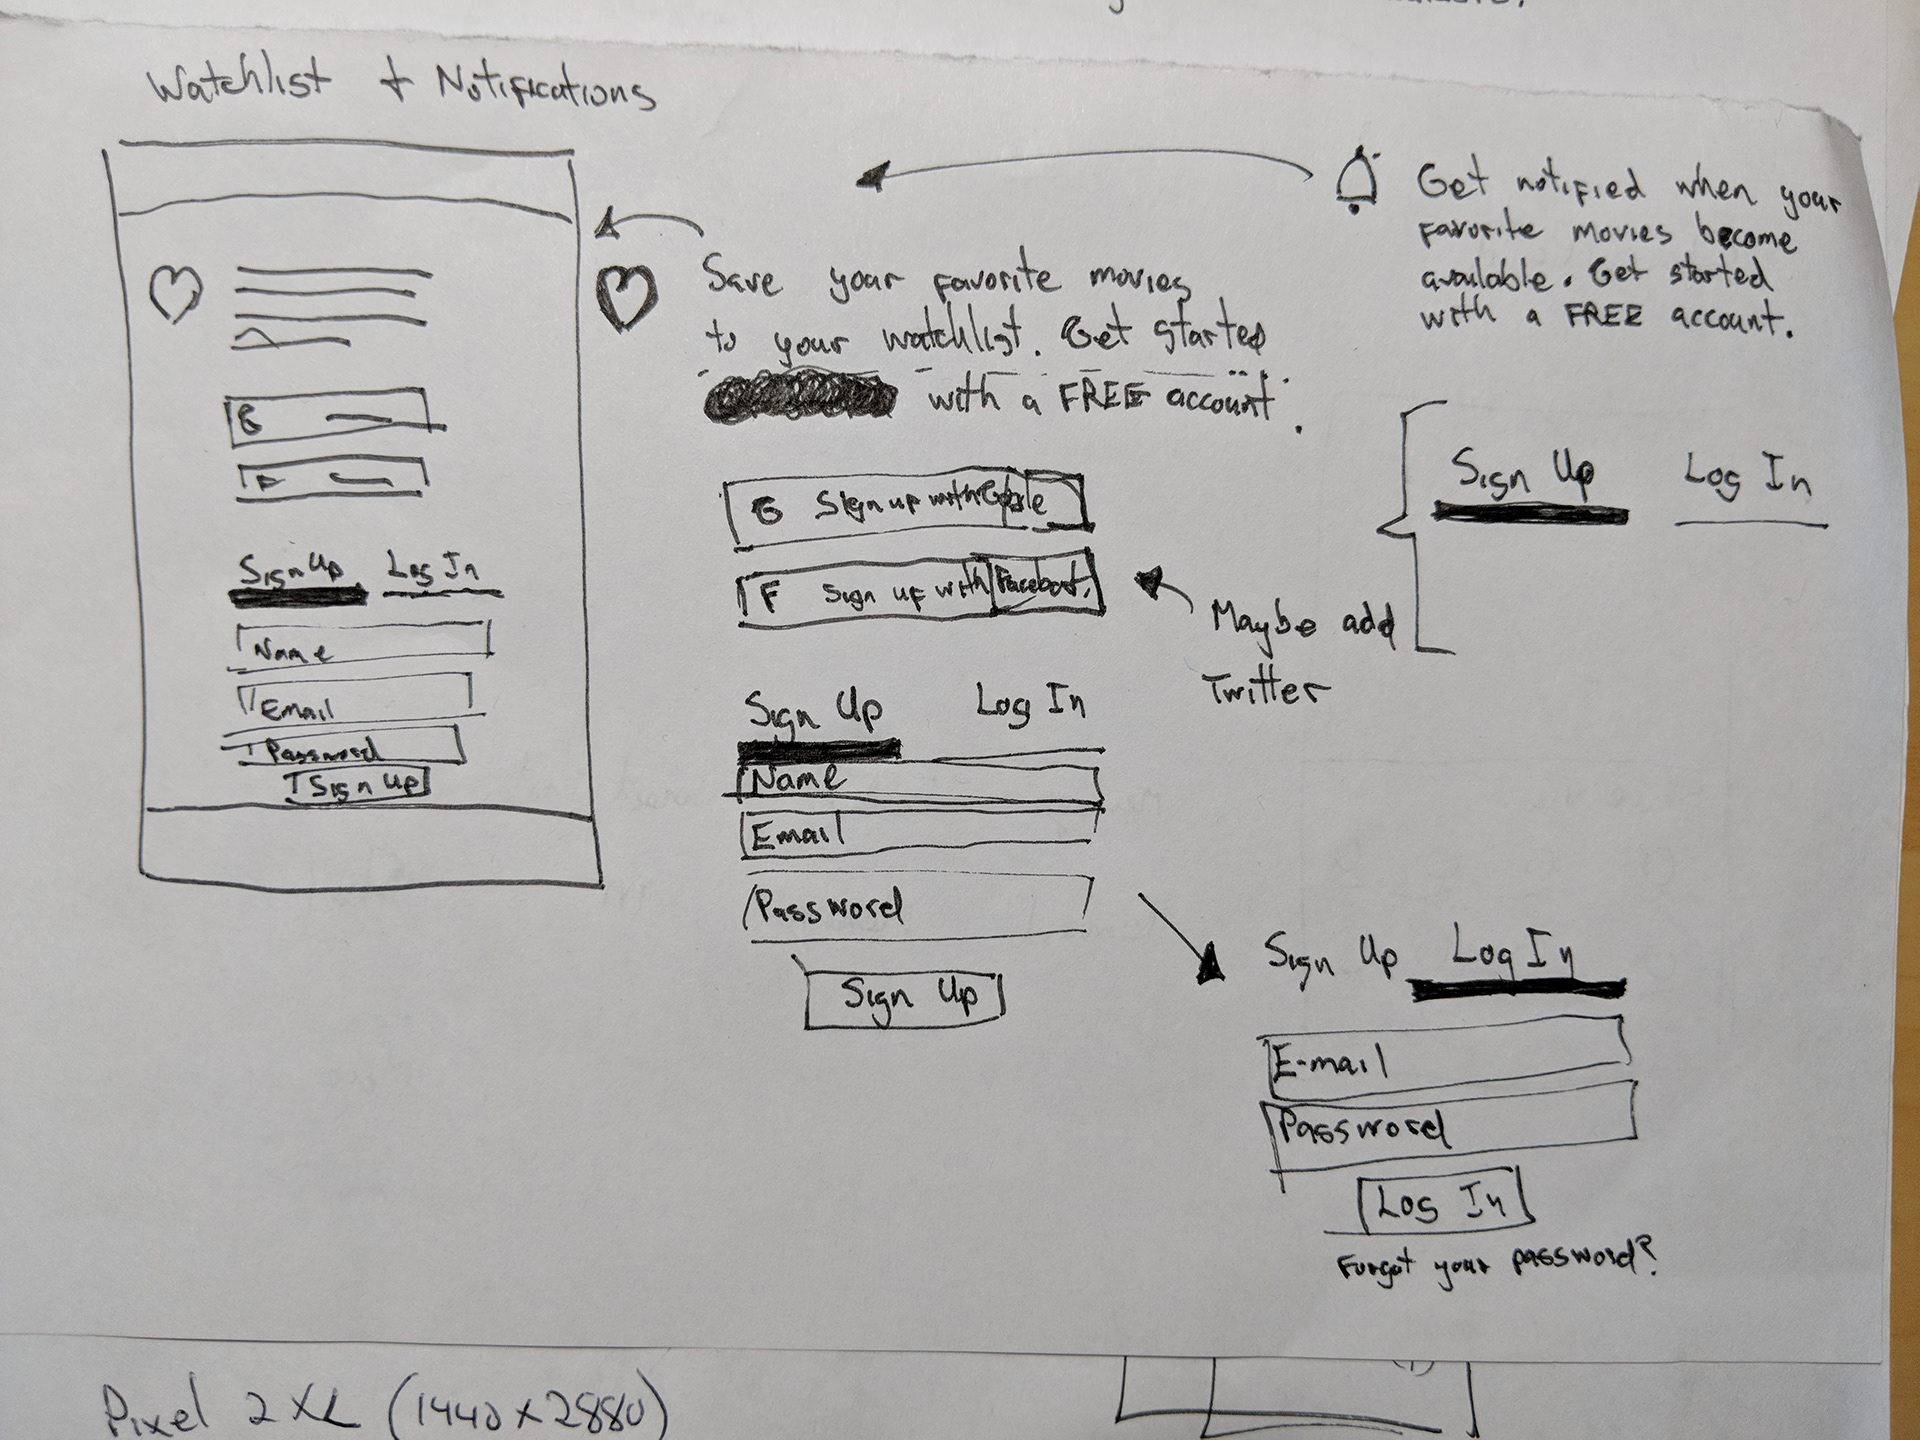 Watchlist + Notifications
Sign Up Log In
Name
Email
Password
Sign Up
Save your favorite movies
to your watchlist. Get started
with a FREE account.
G Sign up with Google
F Sign up with Facebook
Sign Up Log In
Name
Email
Password
Sign Up
Get notified when your
favorite movies become
available. Get started
with a FREE account.
Sign Up Log In
Maybe add
Twitter
Sign Up Log In
E-mail
Password
Log In
Forgot your password?
Pixel 2 XL (1440x2880)